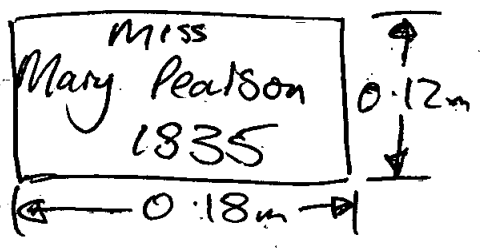 Miss
Mary Pearson
1835
0.12m
0.18m